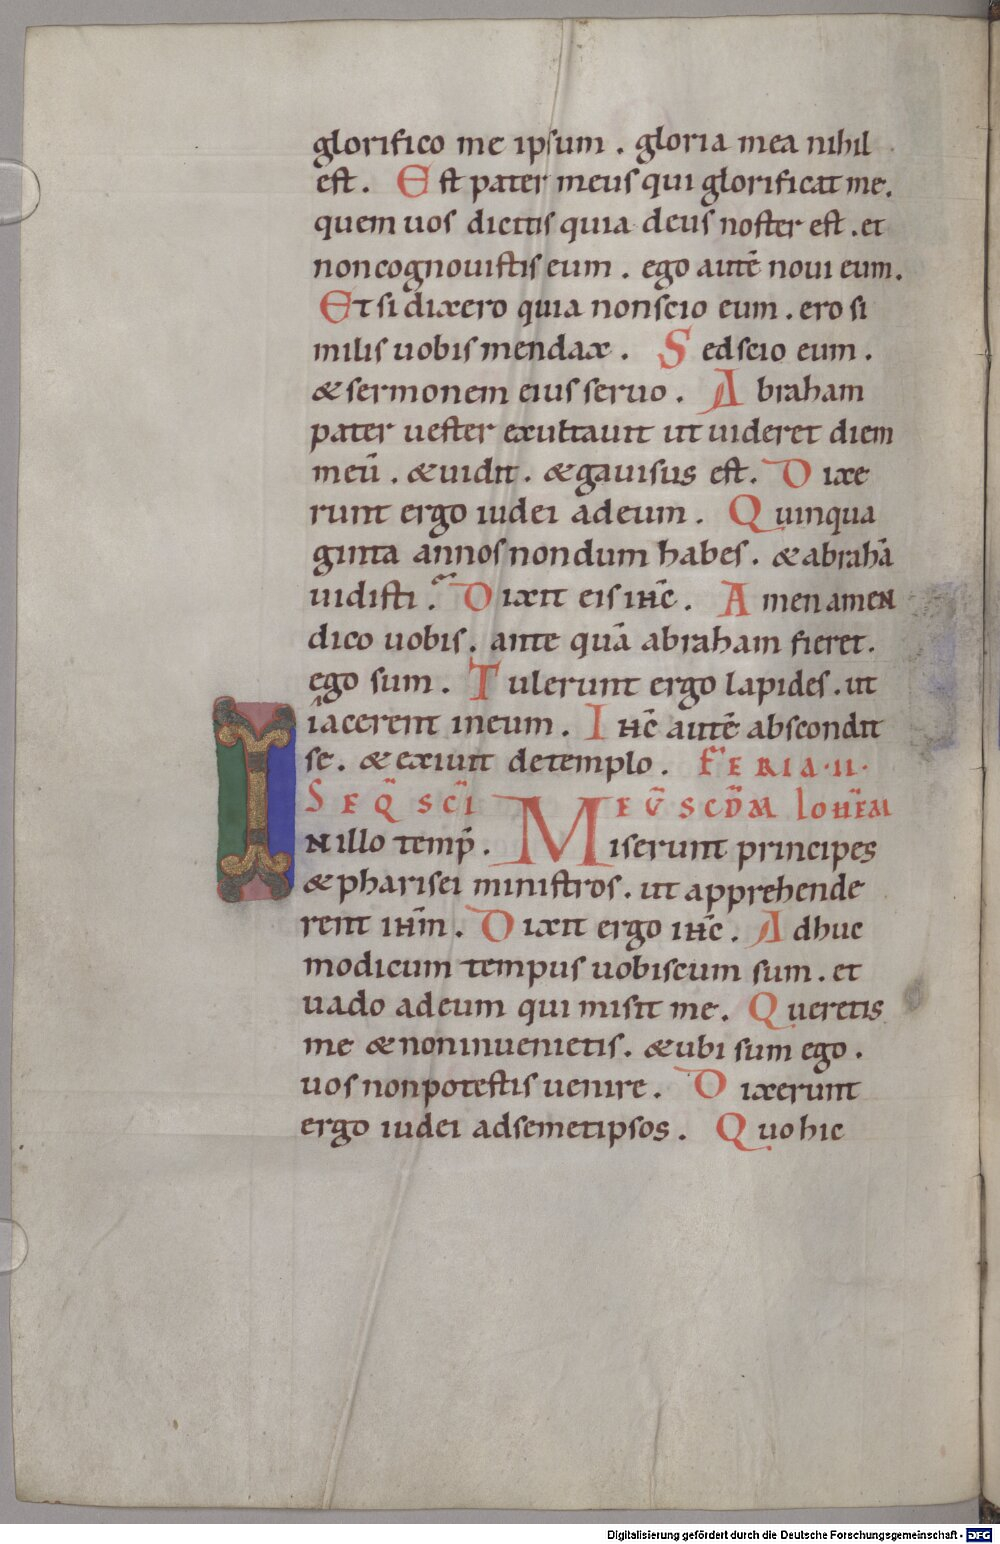 glorifico me ipsum . gloria mea nihil
est . Est pater meus qui glorificat me.
quem uos dicitis quia deus noster est . et
non cognouistis eum . ego autē noui eum .
Et si dixero quia non scio eum . ero si
milis uobis mendax . Sed scio eum .
& sermonem eius seruo . Abraham
pater uester exultauit ut uideret diem
meū . & uidit . & gauisus est . Dixe
runt ergo iudei ad eum . Quinqua
ginta annos nondum habes . & abrahā
uidisti . Dixit eis ihc̄ . Amen amen
dico uobis . ante quā abraham fieret .
ego sum . Tulerunt ergo lapides . ut
iacerent in eum . Ihc̄ autē abscondit
se . & exiuit de templo . FERIA · II ·
SEQ̄ SC̄I EŪ SCD̄M IOHEM
IN illo temp̄ . Miserunt principes
& pharisei ministros . ut apprehende
rent ihm̄ . Dixit ergo ihc̄ . Adhuc
modicum tempus uobiscum sum . et
uado ad eum qui misit me . Queretis
me & non inuenietis . & ubi sum ego .
uos non potestis uenire . Dixerunt
ergo iudei ad semetipsos . Quo hic
Digitalisierung gefördert durch die Deutsche Forschungsgemeinschaft - DFG